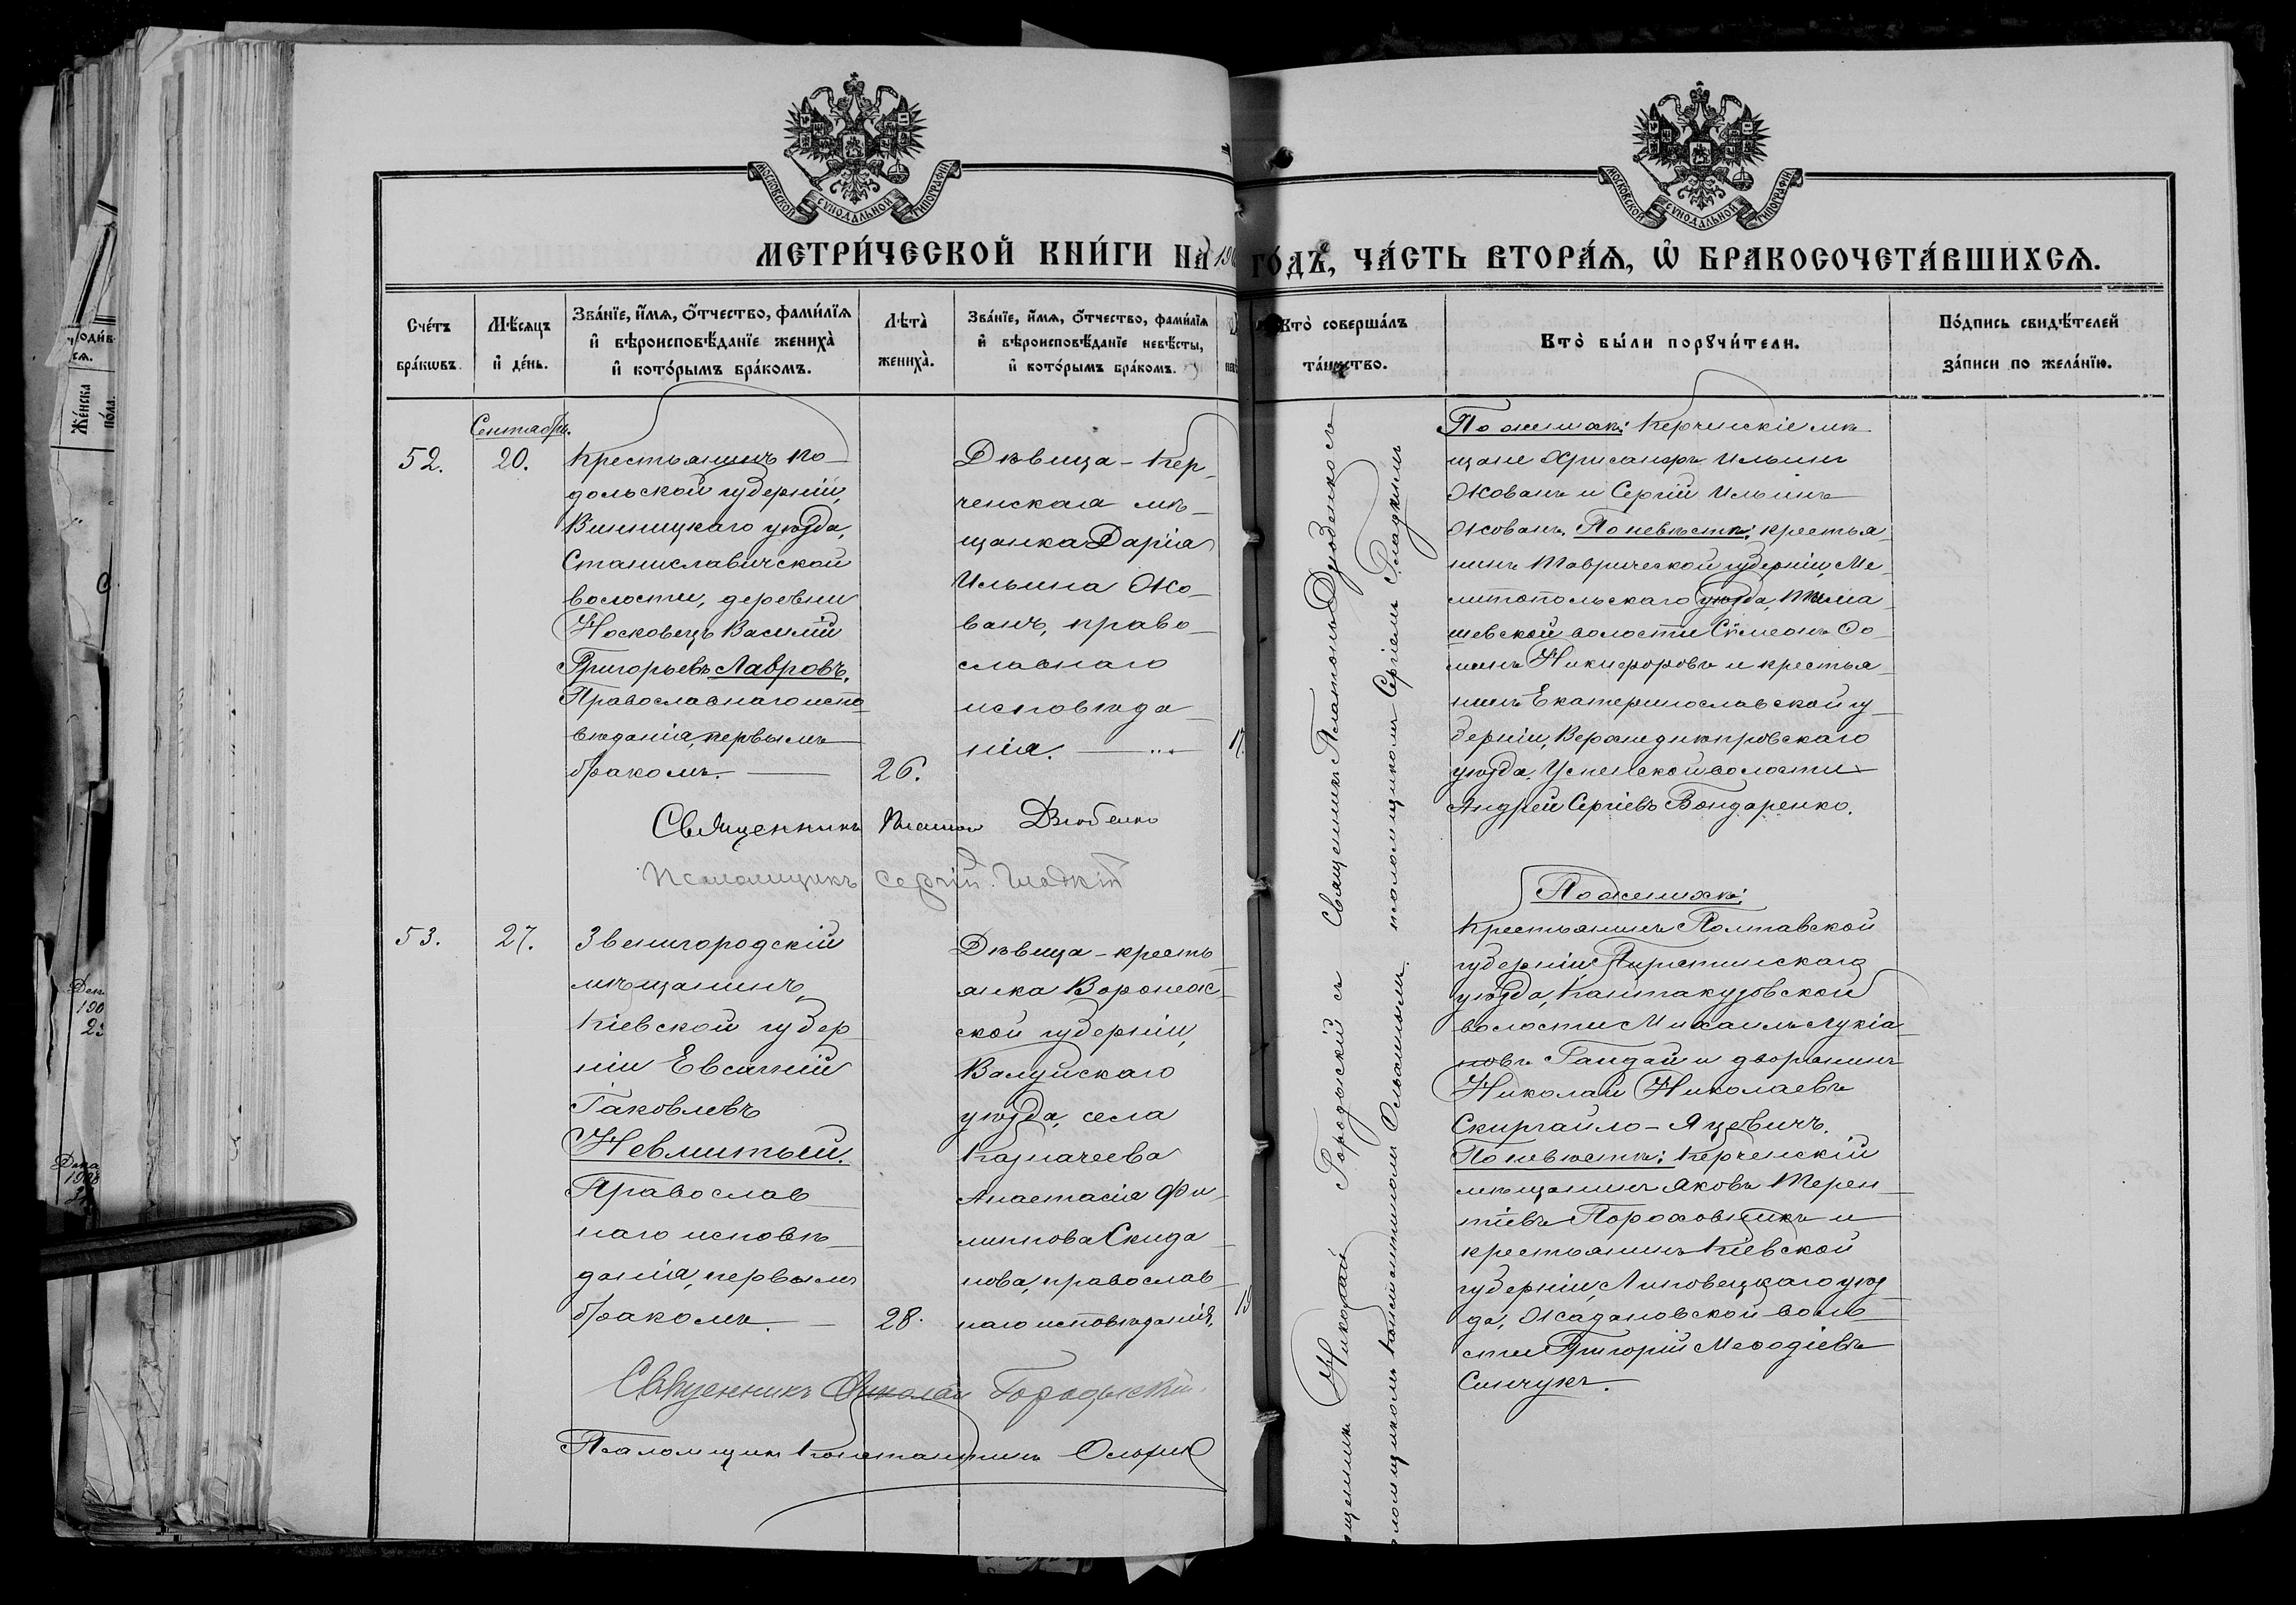 МОСКОВСКОЙ СУНОДАЛЬНОЙ ТИПОГРАФІИ
МОСКОВСКОЙ СУНОДАЛЬНОЙ ТИПОГРАФІИ
МЕТРИ́ЧЕСКОЙ КНИ́ГИ НА 190
ГО́ДЪ, ЧА́СТЬ ВТОРА́Ѧ, Ѽ БРАКОСОЧЕТА́ВШИХСѦ.
Сче́тъ
бра́кѡвъ.
Мѣ́сяцъ
и҆ де́нь.
Зва́нїе, и҆́мя, ѻ҆́тчество, фами́лїя
и҆ вѣроисповѣ́данїе жениха̀
и҆ кото́рымъ бра́комъ.
Лѣта̀
жениха̀.
Зва́нїе, и҆́мя, ѻ҆́тчество, фами́лїя
и҆ вѣроисповѣ́данїе невѣ́сты,
и҆ кото́рымъ бра́комъ.
Кто̀ соверша́лъ
та́инство.
Кто̀ бы́ли порꙋчи́тели.
По́дпись свидѣ́телей
за́писи по жела́нїю.
Сентябрь.
52.
20.
Крестьянинъ По-
дольской губерніи,
Винницкаго уѣзда,
Станиславчской
волости, деревни
Носковецъ Василій
Григорьевъ Лавровъ.
Православнаго испо-
вѣданія, первымъ
бракомъ.
26.
Дѣвица - Кер-
ченская мѣ-
щанка Дарія
Ильина Жо-
ванъ, право-
славнаго
исповѣда-
нія.
17.
Священникъ Платонъ Дзюбенко
Псаломщикъ Сергій Гладкій
Священникъ Платонъ Дзюбенко съ
псаломщикомъ Сергіемъ Гладкимъ
По женихѣ: Керченскіе мѣ-
щане Хрисанфъ Ильинъ
Жованъ и Сергій Ильинъ
Жованъ. По невѣстѣ: крестья-
нинъ Таврической губерніи, Ме-
литопольскаго уѣзда, Тима-
шевской волости Симеонъ Ѳо-
минъ Никифоровъ и крестья-
нинъ Екатеринославской гу-
берніи, Верхнеднѣпровскаго
уѣзда, Успенской волости
Андрей Сергіевъ Бондаренко.
53.
27.
Звенигородскій
мѣщанинъ,
Кіевской губер-
ніи Евсигній
Іаковлевъ
Невмитый.
Православ-
наго исповѣ-
данія, первымъ
бракомъ.
28.
Дѣвица - кресть-
янка Воронеж-
ской губерніи,
Валуйскаго
уѣзда, села
Казначеева
Анастасія Фи-
липпова Скида-
нова, православ-
наго исповѣданія,
19
Священникъ Николай Городыскій.
Псаломщикъ Константинъ
щенникъ Николай Городыскій съ
ломщикомъ Константиномъ
По женихѣ:
Крестьянинъ Полтавской
губерніи, Пирятинскаго
уѣзда, Кантакузовской
волости Михаилъ Лукіа-
новъ Гандай и дворянинъ
Николай Николаевъ
Скиргайло-Яцевичъ.
По невѣстѣ: Керченскій
мѣщанинъ Яковъ Терен-
тіевъ Пороховникъ и
крестьянинъ Кіевской
губерніи, Липовецкаго уѣз-
да, Жадановской воло-
сти Григорій Меѳодіевъ
Синчукъ.